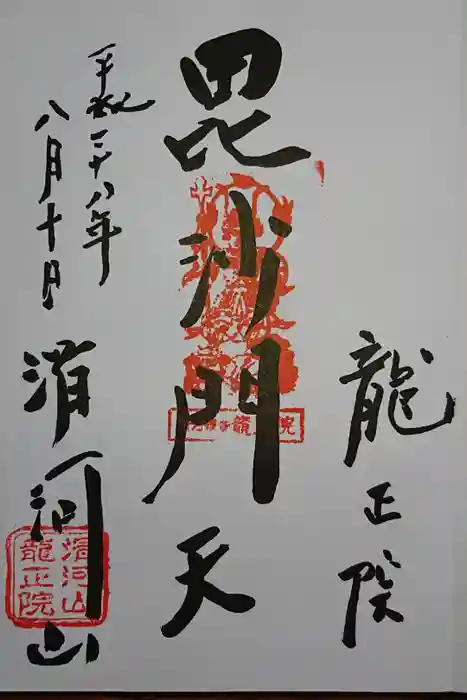 龍正院
毘沙門天
平成二十八年
八月十日
滑河山
滑河山
龍正院